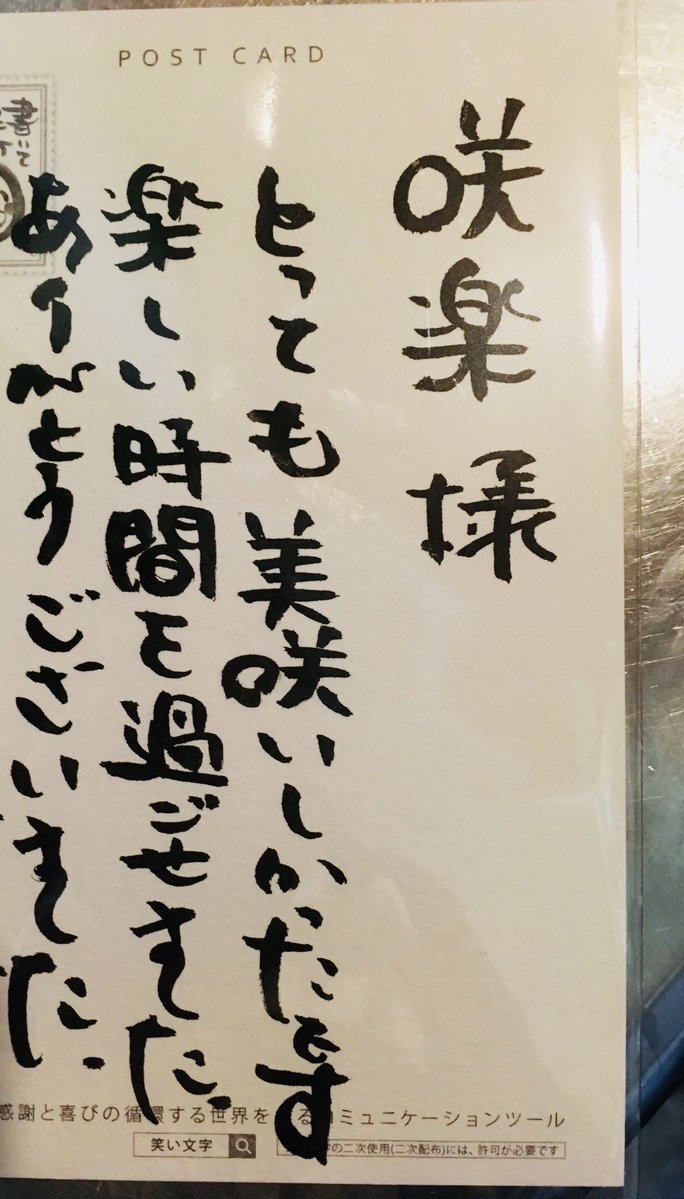 POST CARD
咲楽 様
とっても美咲いしかたです
楽しい時間を過ごせました。
ありがとうございました。
書いて
感謝と喜びの循環する世界を
る
ミュニケーションツール
笑い文字
の二次使用(二次配布)には、許可が必要です